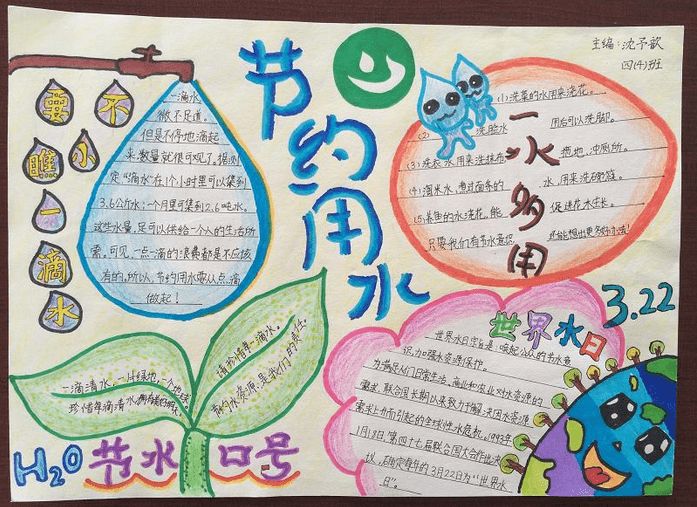 主编:沈予歆
四(4)班
节约用水
不要小瞧一滴水
一滴水
微不足道。
但是不停地滴起
来,数量就很可观了。据测
定“滴水”在1个小时里可以集到
3.6公斤水;一个月里可集到2.6吨水。
这些水量,足可以供给一个人的生活所
需。可见,一点一滴的浪费都是不应该
有的。所以,节约用水要从点滴
做起!
一水多用
(1)洗菜的水用来浇花。
(2)洗脸水用后可以洗脚。
(3)洗衣水用来洗拖布、拖地、冲厕所。
(4)淘米水,煮过面条的水,用来洗碗筷。
(5)养鱼的水浇花,能促进花木生长。
只要我们有节水意识,
请珍惜每一滴水。
节约水资源,是我们的责任。
一滴清水,一片绿地,一个地球
珍惜每滴清水,
H2O 节水口号
3.22
世界水日
世界水日宗旨是:唤起公众的节水意
识,加强水资源保护。
为满足人们日常生活、商业和农业对水资源的
需求,联合国长期以来致力于解决因水资源
需求上升而引起的全球性水危机。1993年
1月18日,第四十七届联合国大会作出决
议,确定每年的3月22日为“世界水
日”。